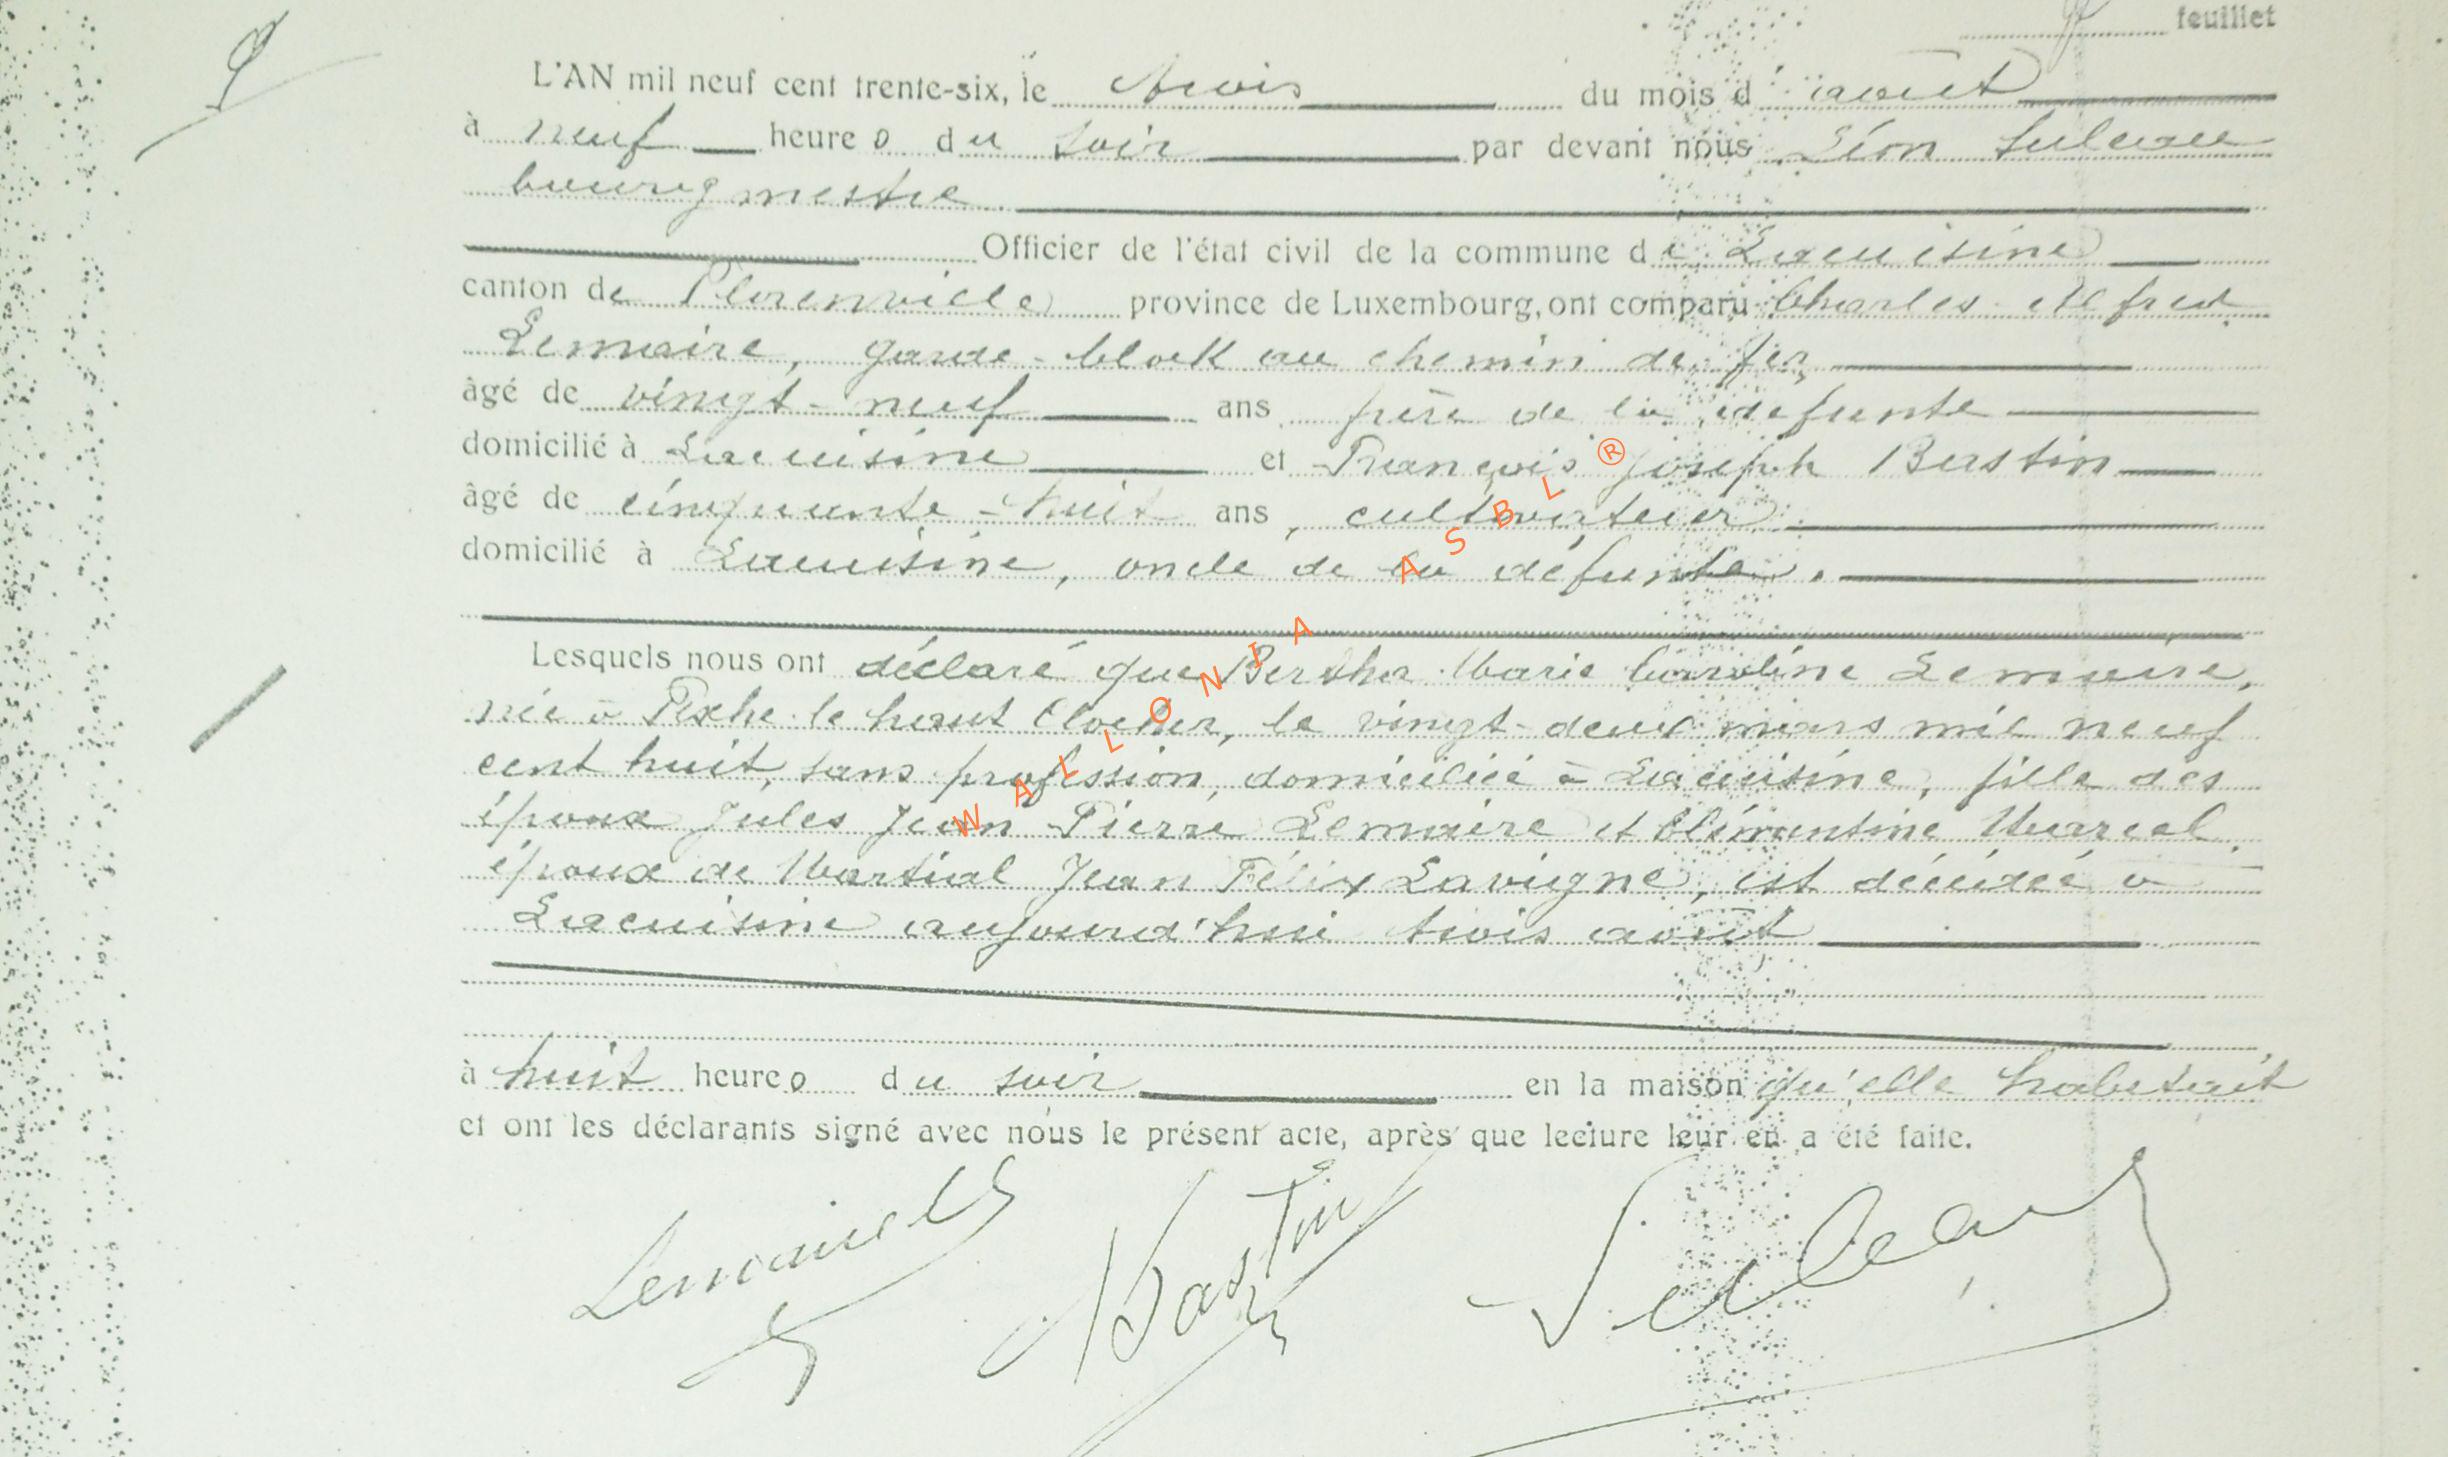 9
feuillet
L'AN mil neuf cent trente-six, le trois du mois d'août
à neuf heures du soir par devant nous Léon
bourgmestre
Officier de l'état civil de la commune de Lacuisine
canton de Florenville province de Luxembourg, ont comparu Charles Alfred
Lemaire, garde-block au chemin de fer,
âgé de vingt-neuf ans frère de la défunte
domicilié à Lacuisine et François Joseph Bastin
âgé de cinquante-huit ans, cultivateur
domicilié à Lacuisine, oncle de la défunte.
Lesquels nous ont déclaré que Bertha Marie Caroline Lemaire,
née à le haut Clocher, le vingt-deux mars mil neuf
cent huit, sans profession, domiciliée à Lacuisine, fille des
époux Jules Jean Pierre Lemaire et Clémentine Marcel,
épouse de Martial Jean Félix Lavigne, est décédée à
Lacuisine aujourd'hui trois août
à huit heures du soir en la maison qu'elle habitait
et ont les déclarants signé avec nous le présent acte, après que lecture leur en a été faite.
Lemaire Bastin
WALLONIA ASBL ®